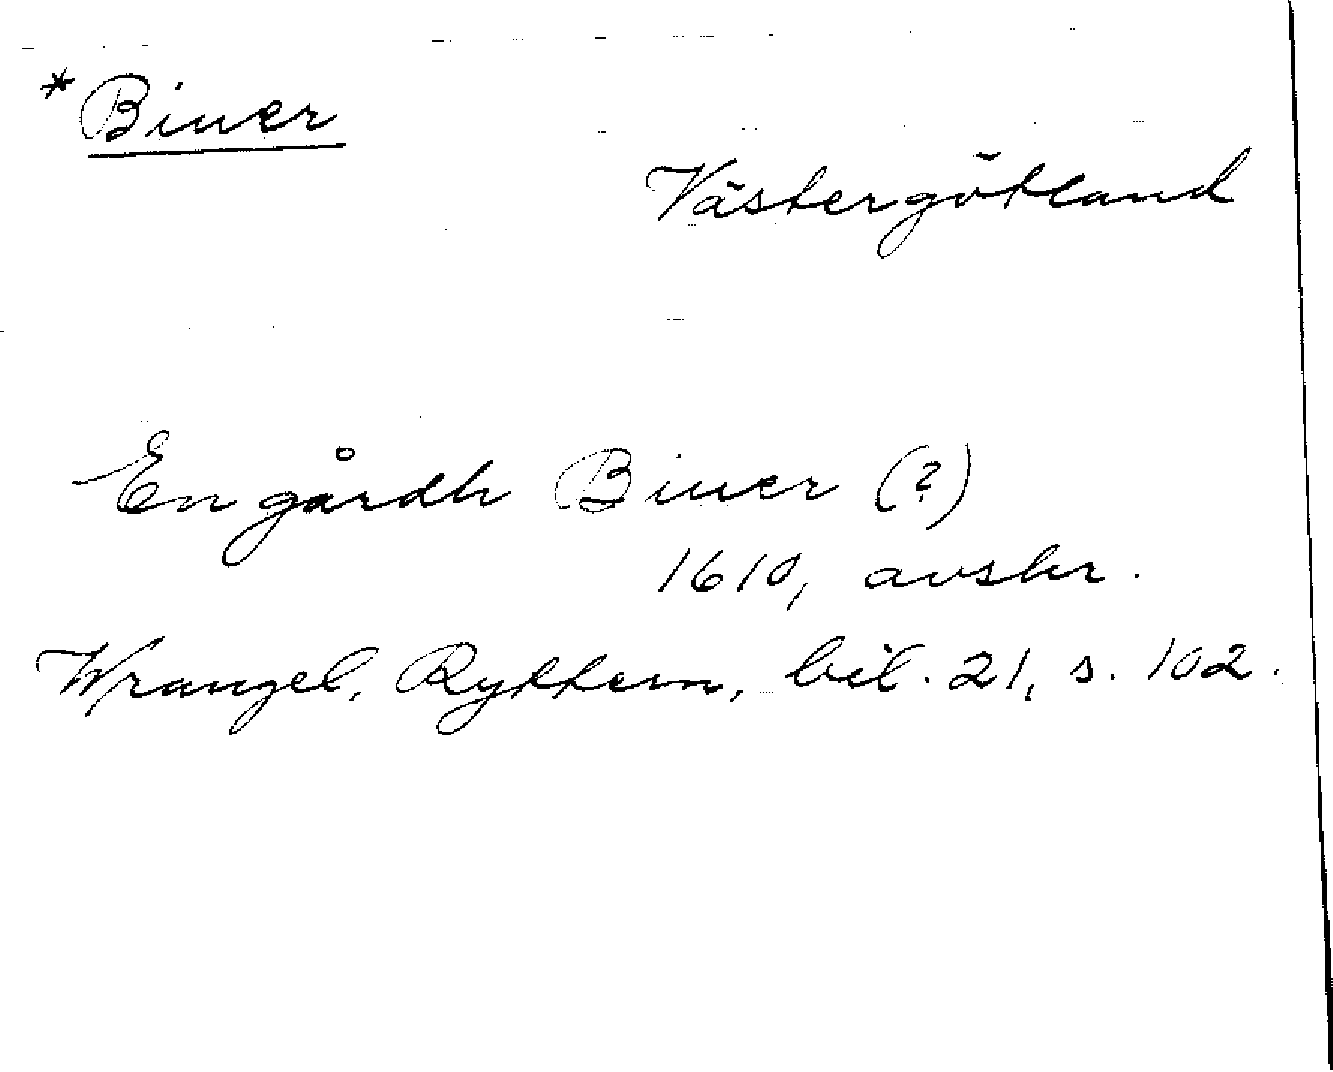 * Biuer
Västergötland
En gårdh Biuer (?)
1610, avskr.
Wrangel, Ryttern, bil. 21, s. 102.